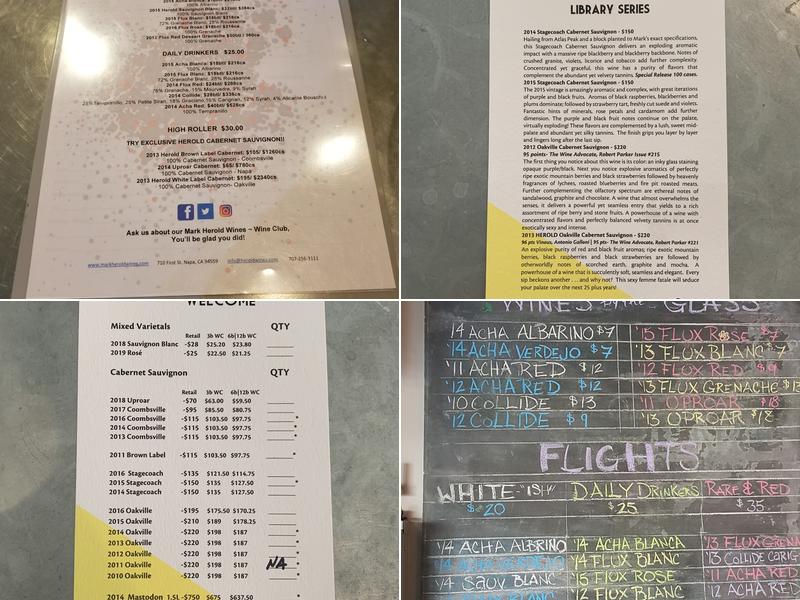 100% Albarino
2012 Flux Red Dessert Grenache $50btl / $60cs
100% Grenache
DAILY DRINKERS $25.00
2015 Acha Blanca: $18btl/ $216cs
100% Albarino
2015 Flux Blanc: $18btl/ $216cs
72% Grenache Blanc, 28% Roussanne
2014 Flux Red: $24btl/ $288cs
76% Grenache, 15% Mourvedre, 9% Syrah
2014 Collide: $28btl/ $336cs
2014 Acha Red: $40btl/ $528cs
100% Tempranillo
HIGH ROLLER $30.00
TRY EXCLUSIVE HEROLD CABERNET SAUVIGNON!!
2013 Herold Brown Label Cabernet: $105/ $1260cs
100% Cabernet Sauvignon - Coombsville
2014 Uproar Cabernet: $65/ $780cs
100% Cabernet Sauvignon - Napa
2013 Herold White Label Cabernet: $195/ $2340cs
100% Cabernet Sauvignon- Oakville
Ask us about our Mark Herold Wines ~ Wine Club,
You'll be glad you did!
www.markheroldwines.com 710 First St. Napa, CA 94559 info@heroldwines.com 707-256-3111
LIBRARY SERIES
2014 Stagecoach Cabernet Sauvignon - $150
Hailing from Atlas Peak and a block planted to Mark's exact specifications,
this Stagecoach Cabernet Sauvignon delivers an exploding aromatic
impact with a massive ripe blackberry and blackberry backbone. Notes of
crushed granite, violets, licorice and tobacco add further complexity.
Concentrated yet graceful, this wine has a purity of flavors that
complement the abundant yet velvety tannins. Special Release 100 cases.
2015 Stagecoach Cabernet Sauvignon - $150
The 2015 vintage is amazingly aromatic and complex, with great iterations
of purple and black fruit. Aromas of black raspberries, blackberries and
plums dominate; followed by strawberry tart, freshly cut suede and violets.
Fantastic hints of minerals, rose petals and cardamom add further
dimension. The purple and black fruit notes continue on the palate,
virtually exploding! These flavors are complemented by a lush, sweet mid-
palate and abundant yet silky tannins. The finish grips you layer by layer
and lingers long after the last sip.
2012 Oakville Cabernet Sauvignon - $220
95 points- The Wine Advocate, Robert Parker Issue #215
The first thing you notice about this wine is its color: an inky glass staining
opaque purple/black. Next you notice explosive aromatics of perfectly
ripe exotic mountain berries and black strawberries followed by heavenly
fragrances of lychees, roasted blueberries and fire pit roasted meats.
Further complementing the olfactory spectrum are ethereal notes of
sandalwood, graphite and chocolate. A wine that almost overwhelms the
senses, it delivers a powerful yet seamless entry that yields to a rich
assortment of ripe berry and stone fruits. A powerhouse of a wine with
concentrated flavors and perfectly balanced velvety tannins is at once
exotically sexy and intense.
2013 HEROLD Oakville Cabernet Sauvignon - $220
96 pts Vinous, Antonio Galloni | 95 pts- The Wine Advocate, Robert Parker #221
An explosive purity of red and black fruit aromas; ripe exotic mountain
berries, black raspberries and black strawberries are followed by
otherworldly notes of scorched earth, graphite and mocha. A
powerhouse of a wine that is succulently soft, seamless and elegant. Every
sip beckons another . . . and why not? This sexy femme fatale will seduce
your palate over the next 25 plus years!
WELCOME
Mixed Varietals QTY
Retail 3b WC 6b|12b WC
2018 Sauvignon Blanc -$28 $25.20 $23.80
2019 Rosé -$25 $22.50 $21.25
Cabernet Sauvignon QTY
Retail 3b WC 6b|12b WC
2018 Uproar -$70 $63.00 $59.50
2017 Coombsville -$95 $85.50 $80.75
2016 Coombsville -$115 $103.50 $97.75 *
2014 Coombsville -$115 $103.50 $97.75 *
2013 Coombsville -$115 $103.50 $97.75 *
2011 Brown Label -$115 $103.50 $97.75 *
2016 Stagecoach -$135 $121.50 $114.75
2015 Stagecoach -$150 $135 $127.50 *
2014 Stagecoach -$150 $135 $127.50 *
2016 Oakville -$195 $175.50 $170.25
2015 Oakville -$210 $189 $178.25
2014 Oakville -$220 $198 $187 *
2013 Oakville -$220 $198 $187 *
2012 Oakville -$220 $198 $187 *
2011 Oakville -$220 $198 $187 NA *
2010 Oakville -$220 $198 $187 *
2014 Mastodon 1.5L -$750 $675 $637.50
WINES GLASS
'14 ACHA ALBARINO $7 '15 FLUX ROSE $7
'14 ACHA VERDEJO $7 '13 FLUX BLANC $7
'11 ACHA RED $12 '12 FLUX RED $9
'12 ACHA RED $12 '13 FLUX GRENACHE $13
'10 COLLIDE $13 '11 OPROAR $18
'12 COLLIDE $9 '13 OPROAR $18
FLIGHTS
WHITE "ISH" DAILY DRINKERS RARE & RED
$20 $25 $35
'14 ACHA ALBRINO '14 ACHA BLANCA '13 FLUX GRENA
'14 ACHA VERDEJO '14 FLUX BLANC '13 COLLIDE CARIG
'14 SAUV BLANC '15 FLUX ROSE '11 ACHA RED
'12 FLUX BLANC '12 ACHA RED